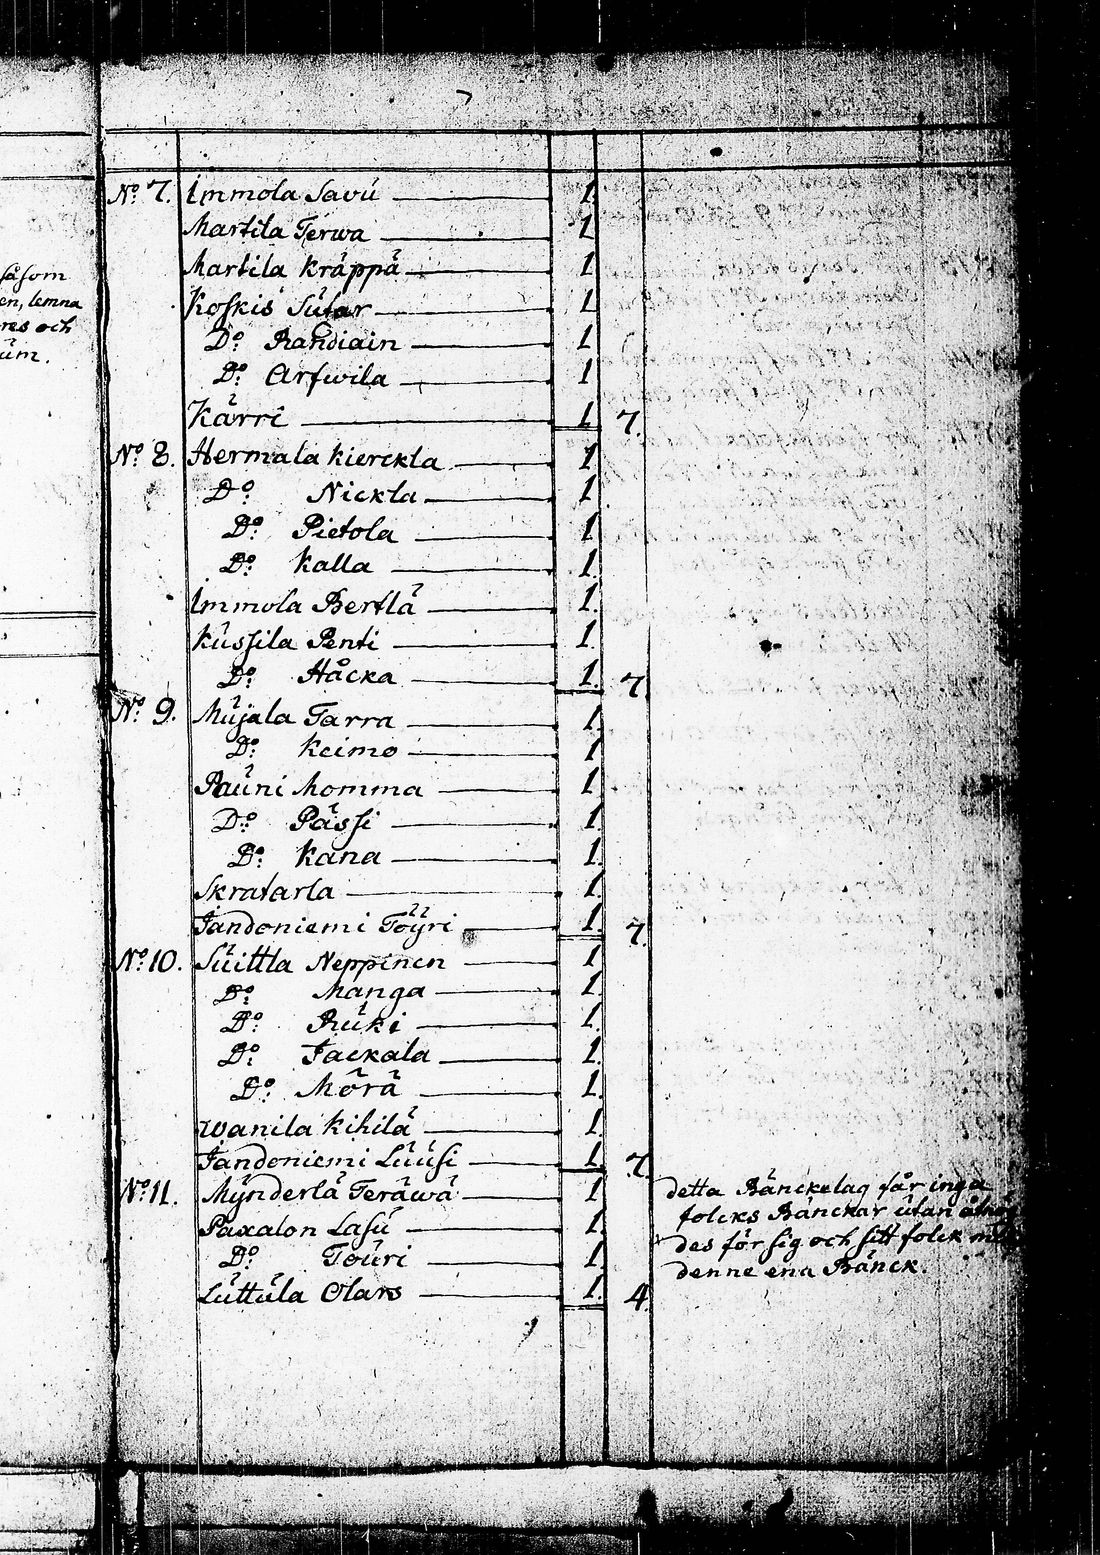 såsom
en, lemna
res och
üm.
7
No 7. Immola Savü 1.
Martila Terwa 1
Martila Kräppä 1
Koskis Sutar 1
Do: Randiain 1
Do: Arfwila 1
Kärri 1. 7.
No 8. Hermala Kierckla 1
Do: Nickla 1
Do: Pietola 1
Do: Kalla 1.
Immola Bertlä 1.
Küssila Penti 1.
Do: Håcka 1. 7.
No 9. Müjala Tarra 1.
Do: Keimo 1
Paüni Momma 1
Do: Pässi 1.
Do: Kana 1.
Skratarla 1.
Jandoniemi Töÿri 1. 7.
No 10. Süittla Neppinen 1.
Do: Manga 1.
Do: Rüki 1.
Do: Jackala 1.
Do: Mörä 1.
Wanila Kihilä 1.
Jandoniemi Lüüsi 1. 7.
No 11. Mÿnderlä Teräwä 1
Paxalon Lasü 1.
Do: Töüri 1.
Lüttüla Olars 1. 4.
detta Bänckelag får inga
folcks Bänckar ütan
des för sig och sitt folck
denne ena Bänck.